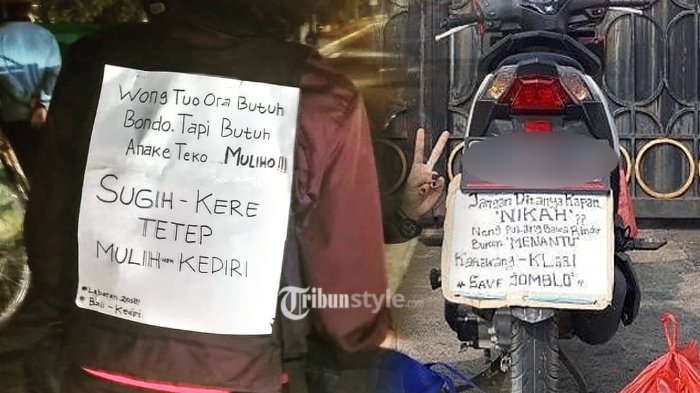 Wong Tuo Ora Butuh
Bondo. Tapi Butuh
Anake Teko ..... MULIHO!!!
SUGIH - KERE
TETEP
MULIH KEDIRI
# Lebaran 2018!
# Bali - Kediri
Tribunstyle.com
Jangan Ditanya Kapan
"NIKAH"??
Neng Pulang Bawa Rindu
Bukan "MENANTU"
Karawang - KLARI
# SAVE JOMBLO #